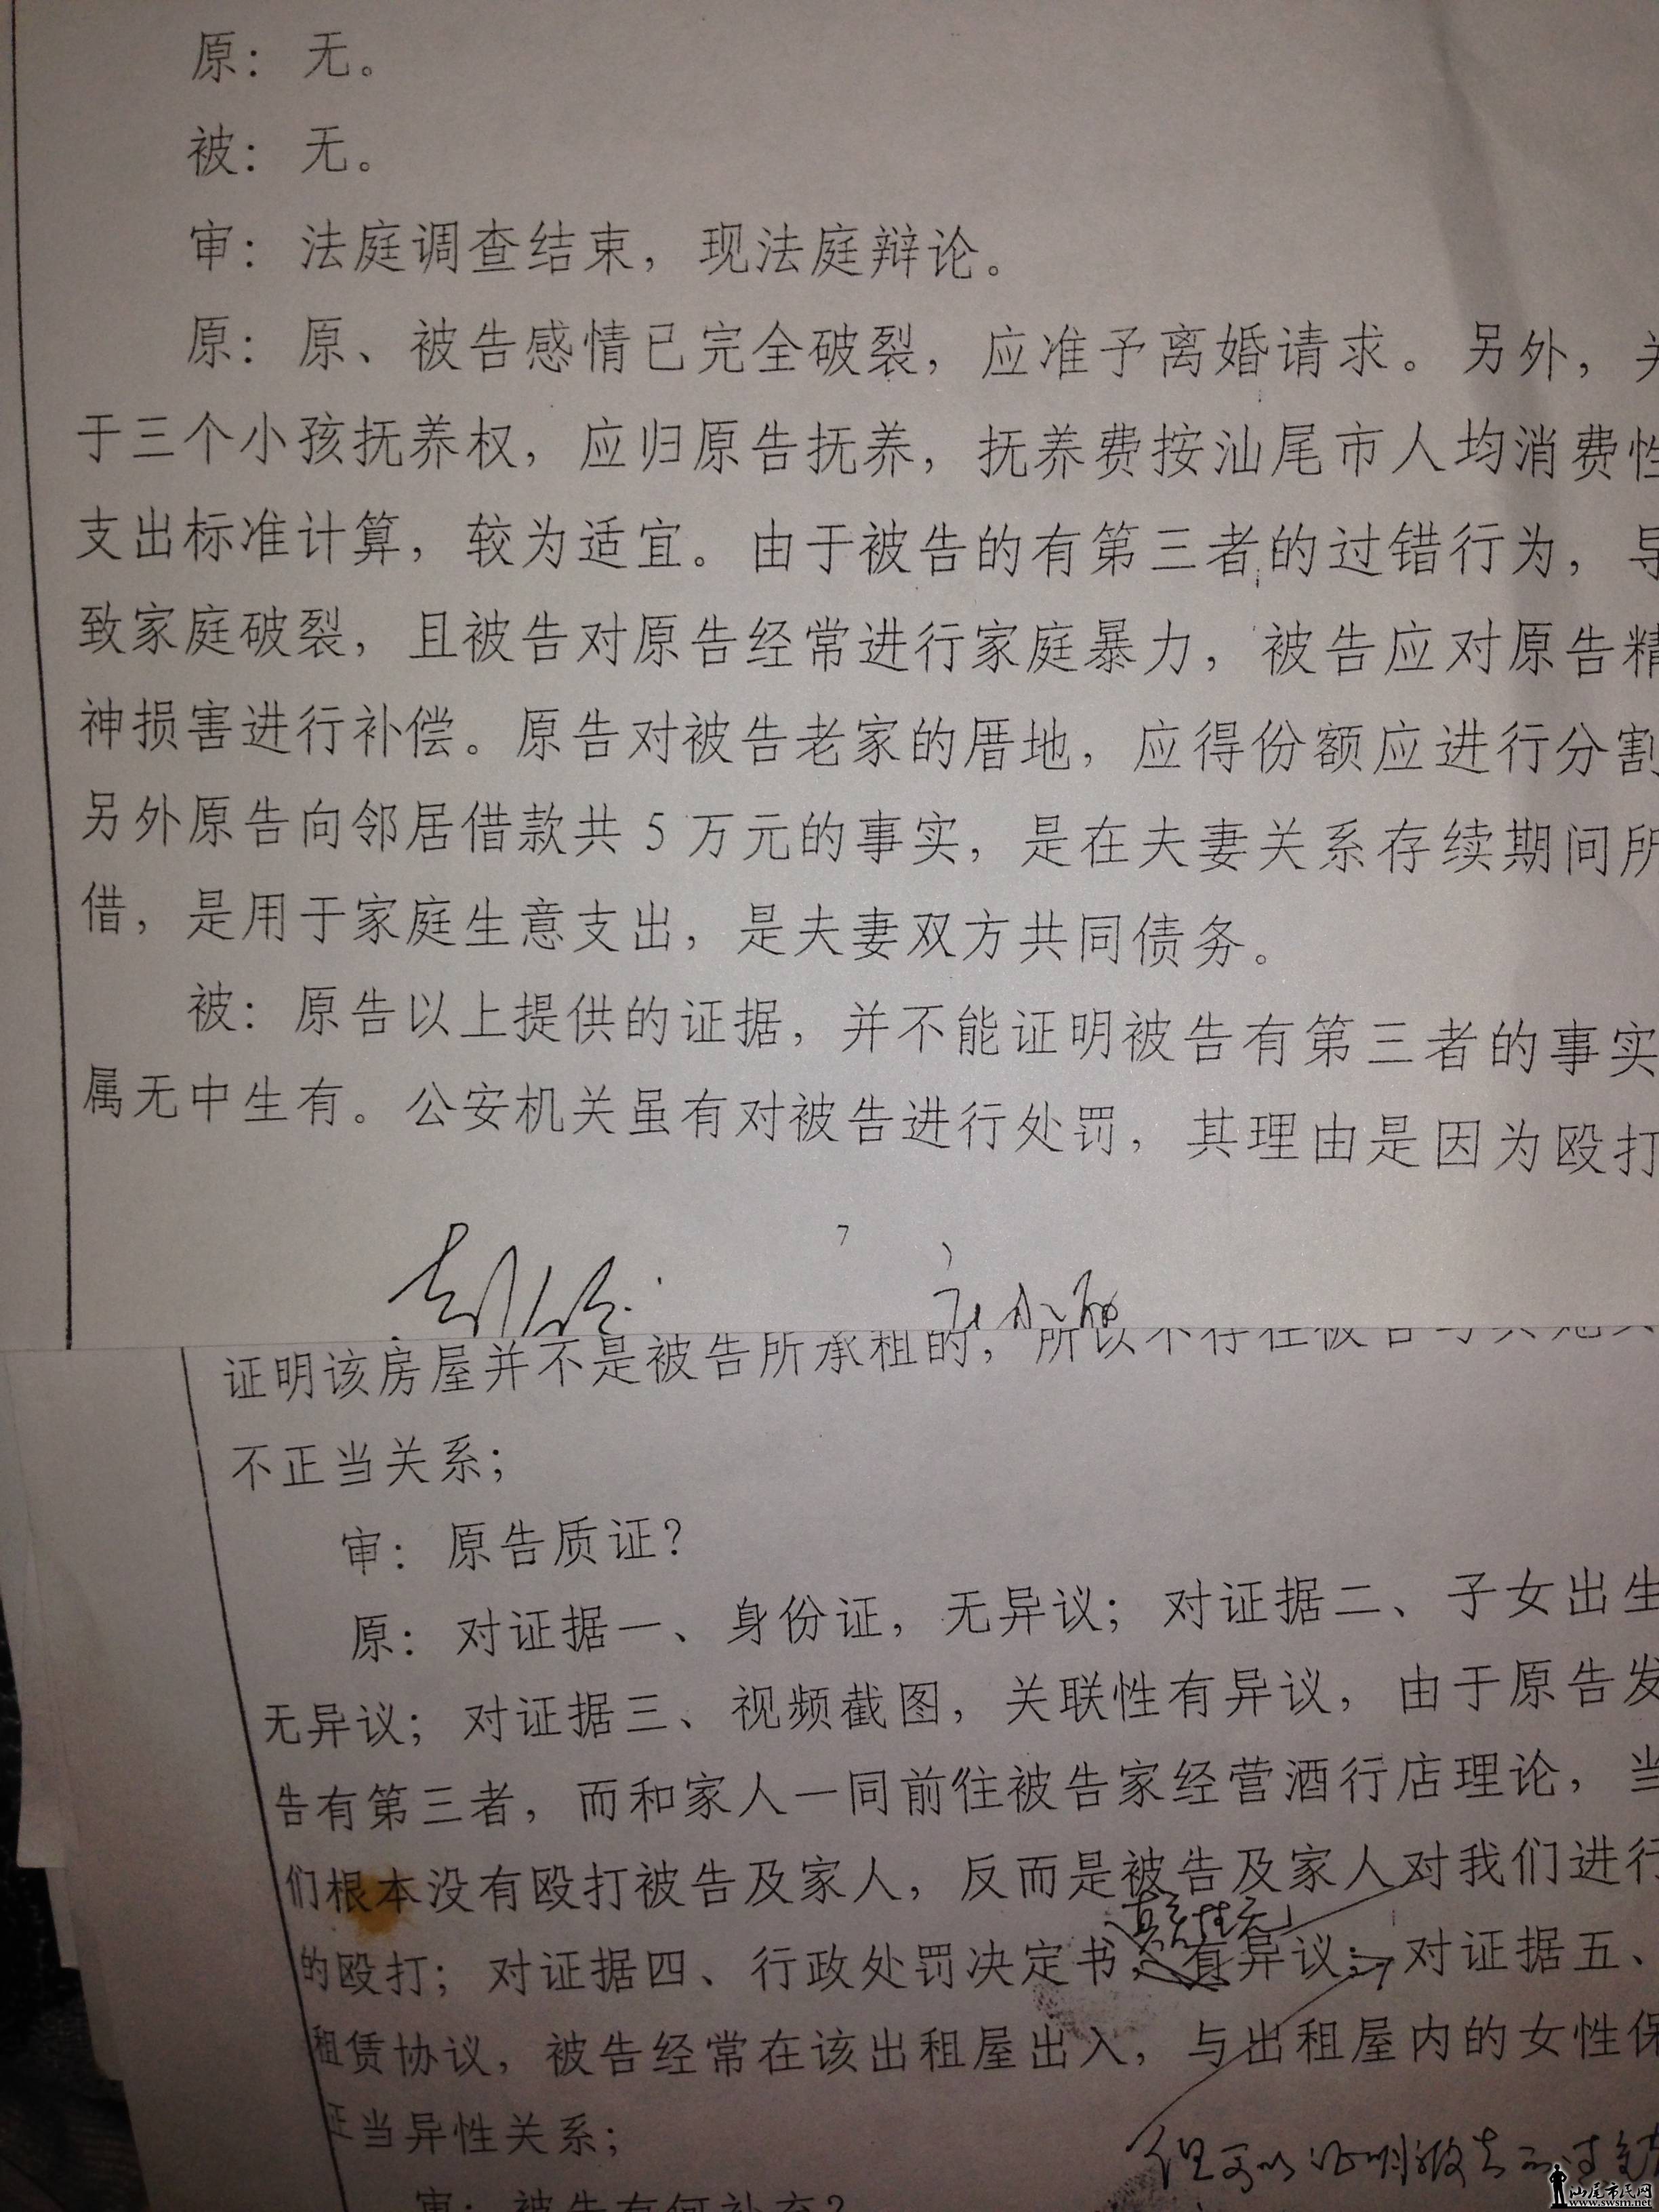 原：无。
被：无。
审：法庭调查结束，现法庭辩论。
原：原、被告感情已完全破裂，应准予离婚请求。另外，关
于三个小孩抚养权，应归原告抚养，抚养费按汕尾市人均消费性
支出标准计算，较为适宜。由于被告的有第三者的过错行为，导
致家庭破裂，且被告对原告经常进行家庭暴力，被告应对原告精
神损害进行补偿。原告对被告老家的厝地，应得份额应进行分割
另外原告向邻居借款共5万元的事实，是在夫妻关系存续期间所
借，是用于家庭生意支出，是夫妻双方共同债务。
被：原告以上提供的证据，并不能证明被告有第三者的事实
属无中生有。公安机关虽有对被告进行处罚，其理由是因为殴打
7
证明该房屋并不是被告所承租的，所以不存在被告与其他
不正当关系；
审：原告质证？
原：对证据一、身份证，无异议；对证据二、子女出生
无异议；对证据三、视频截图，关联性有异议，由于原告发
告有第三者，而和家人一同前往被告家经营酒行店理论，当
们根本没有殴打被告及家人，反而是被告及家人对我们进行
真实性无
的殴打；对证据四、行政处罚决定书，有异议；对证据五、
租赁协议，被告经常在该出租屋出入，与出租屋内的女性保
正当异性关系；
但可以证明被告
审：被告有何补充？
汕尾市民网
www.swsm.net